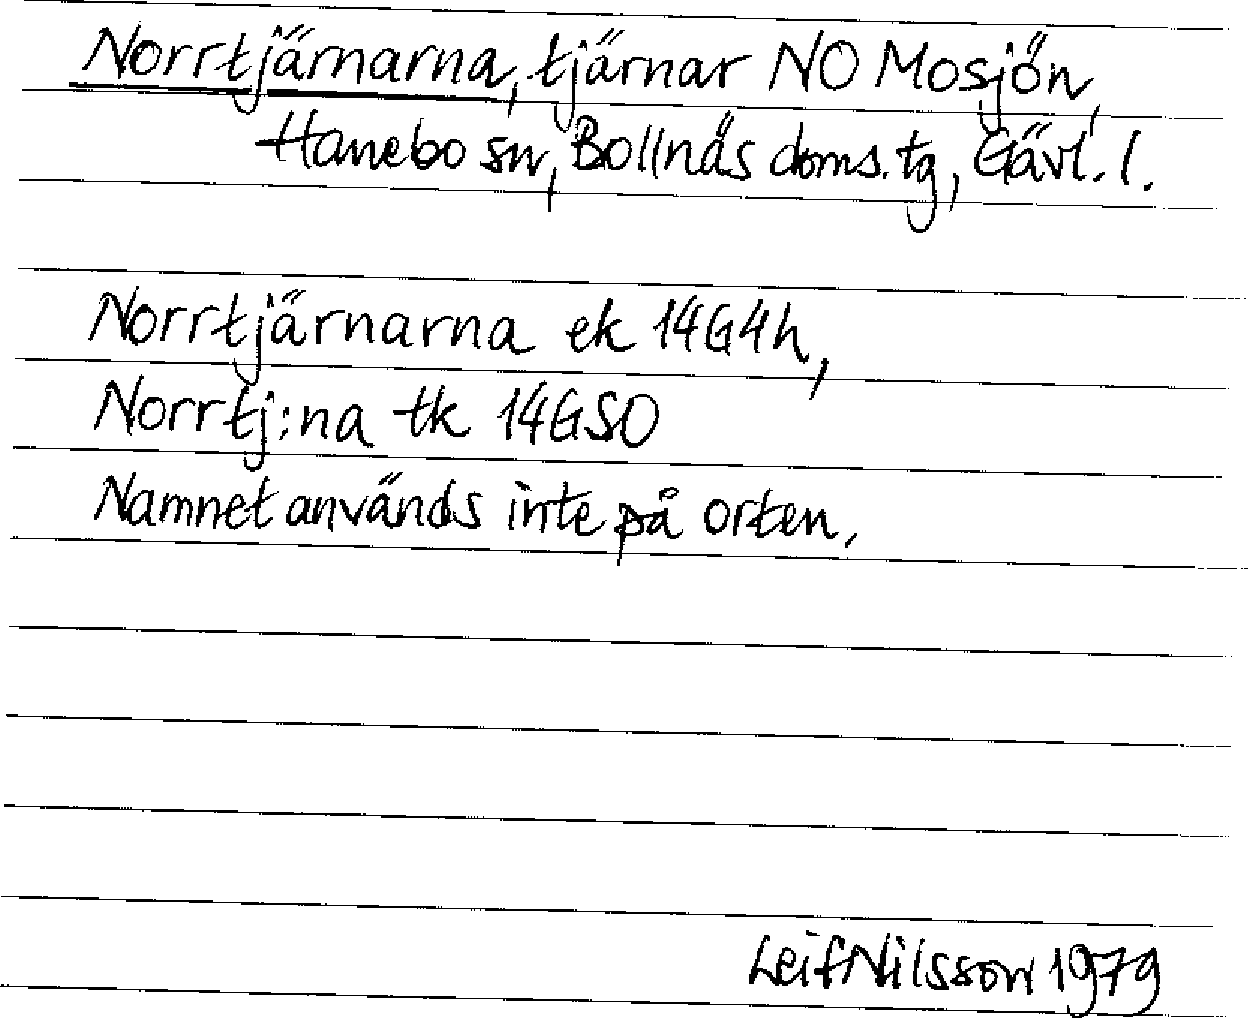 Norrtjärnarna, tjärnar NO Mosjön,
Hanebo sn, Bollnäs doms. tg, Gävl. l.
Norrtjärnarna ek 14G4h,
Norrtj:na tk 14GSO
Namnet används inte på orten.
Leif Nilsson 1979